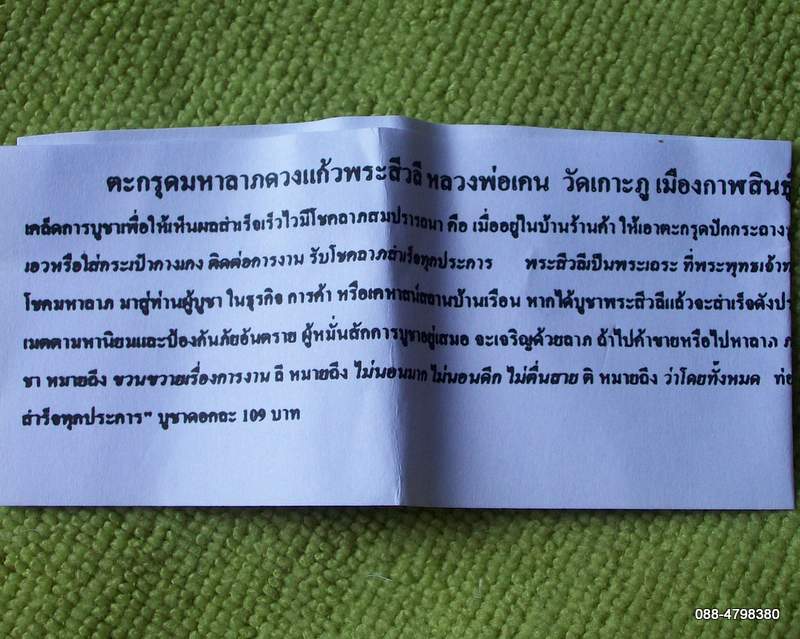 ตะกรุดมหาลาภดวงแก้วพระสีวลี หลวงพ่อเคน วัดเกาะภู เมืองกาฬสินธุ์
เคล็ดการบูชาเพื่อให้เห็นผลสำเร็จเร็วไวมีโชคลาภสมปรารถนา คือ เมื่ออยู่ในบ้านร้านค้า ให้เอาตะกรุดปักกระถาง
เอวหรือใส่กระเป๋ากางเกง ติดต่อการงาน รับโชคลาภสำเร็จทุกประการ พระสีวลีเป็นพระเถระ ที่พระพุทธเจ้า
โชคมหาลาภ มาสู่ท่านผู้บูชา ในธุรกิจ การค้า หรือเคหาสน์สถานบ้านเรือน หากได้บูชาพระสีวลีแล้วจะสำเร็จดัง
เมตตามหานิยมและป้องกันภัยอันตราย ผู้หมั่นสักการบูชาอยู่เสมอ จะเจริญด้วยลาภ ถ้าไปค้าขายหรือไปหาลาภ
ชา หมายถึง ขวนขวายเรื่องการงาน ลี หมายถึง ไม่นอนมาก ไม่นอนดึก ไม่ตื่นสาย ติ หมายถึง ว่าโดยทั้งหมด
สำเร็จทุกประการ" บูชาดอกละ 109 บาท
088-4798380